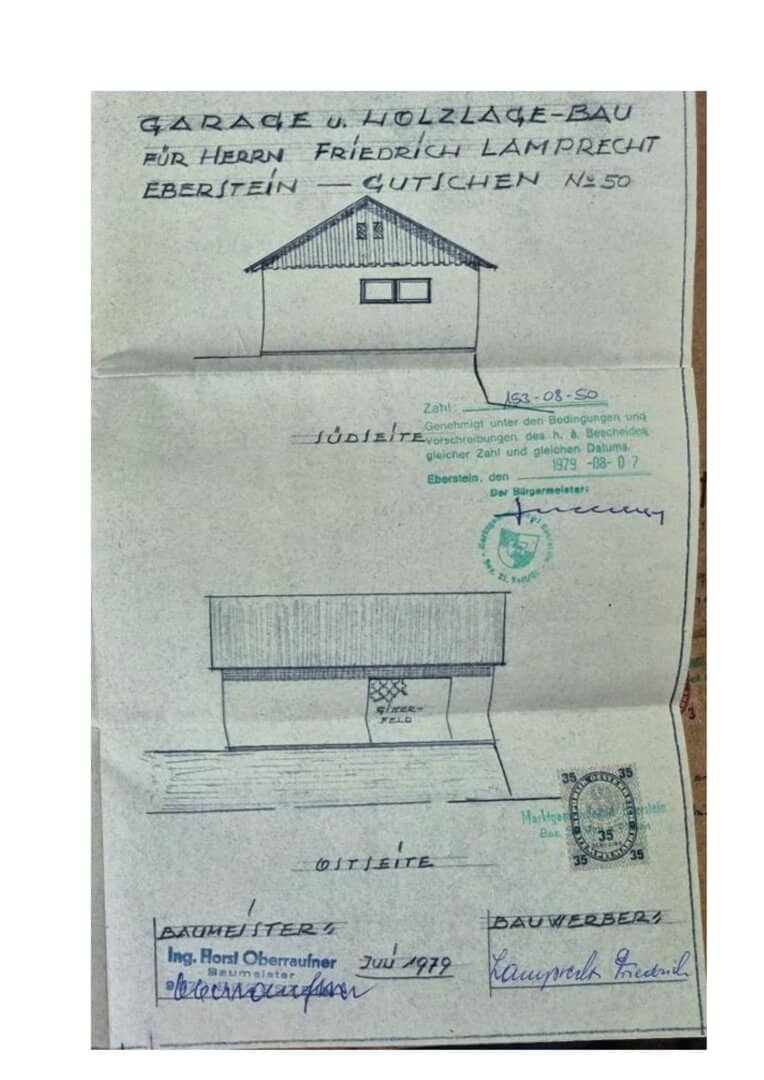 GARAGE u. HOLZLAGE-BAU
FÜR HERRN FRIEDRICH LAMPRECHT
EBERSTEIN — GUTSCHEN No 50
Zahl: 153-08-50
Genehmigt unter den Bedingungen und
vorschreibungen des h. ä. Bescheides
gleicher Zahl und gleichen Datums.
Eberstein, den 1979 -08- 07
Der Bürgermeister:
SÜDSEITE
GITTER-
FELD
35 35
35
35 35
OSTSEITE
BAUMEISTER:
Ing. Horst Oberraufner
Baumeister
JULI 1979
BAUWERBER:
Lamprecht Friedrich